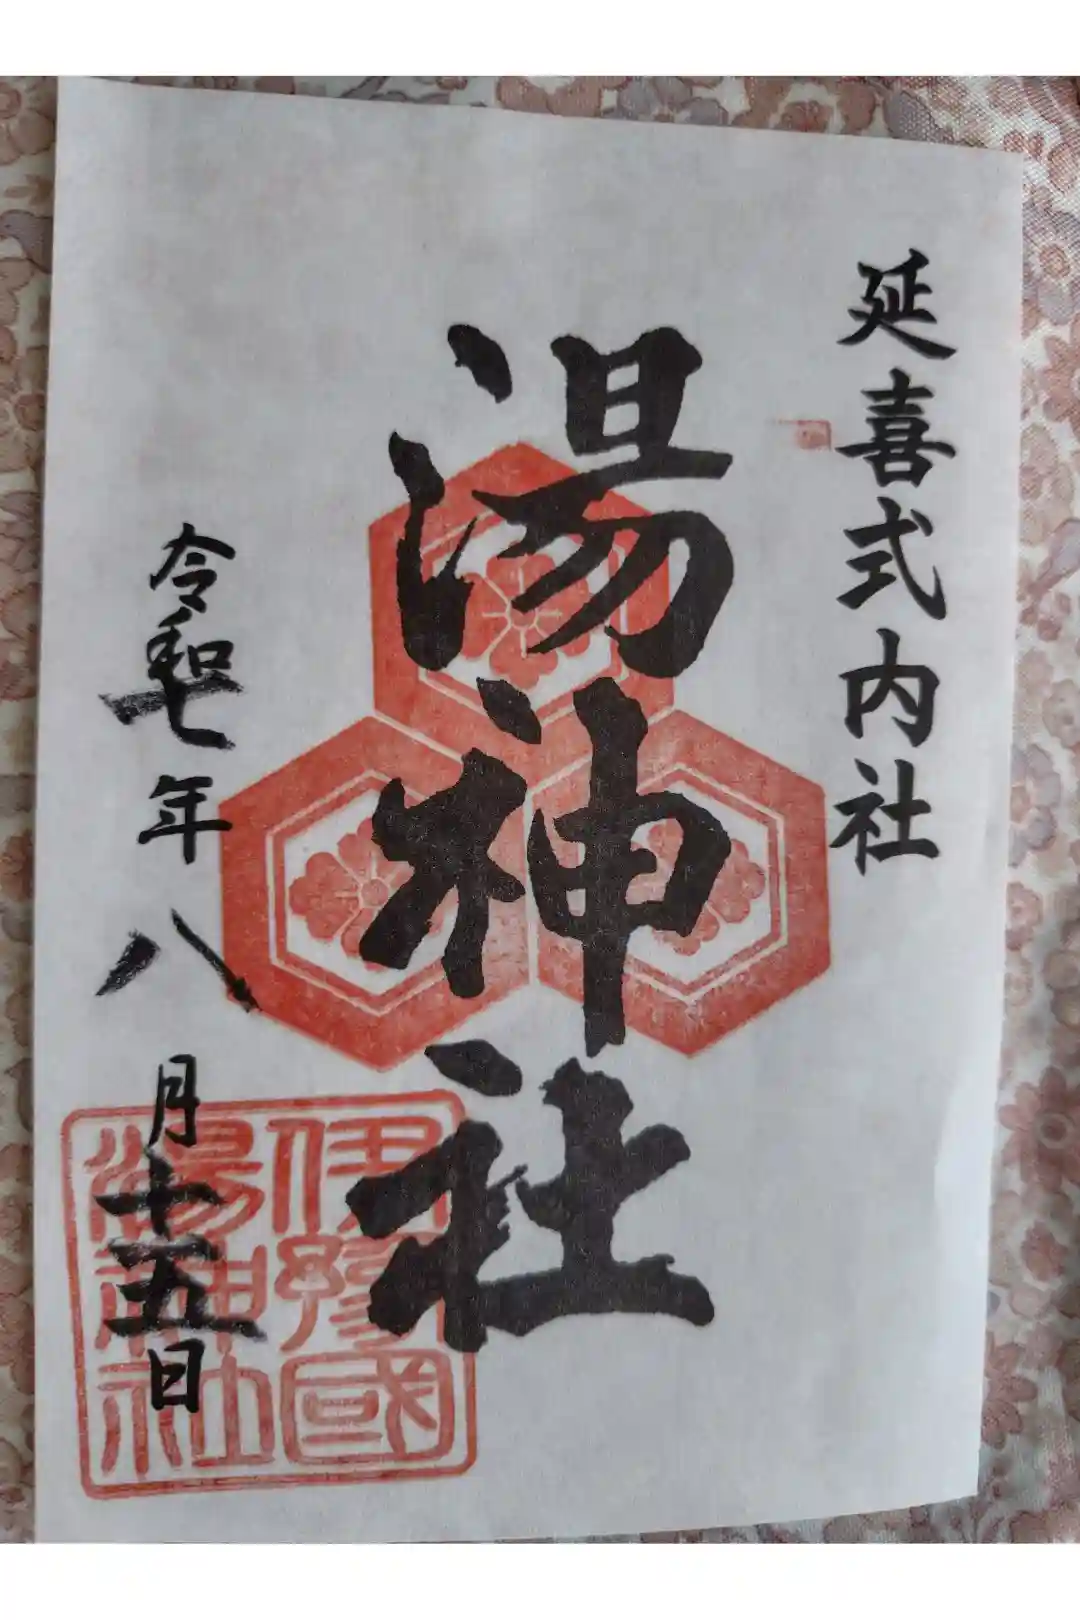 延喜式内社
湯神社
令和七年八月十五日
伊豫國
湯神社